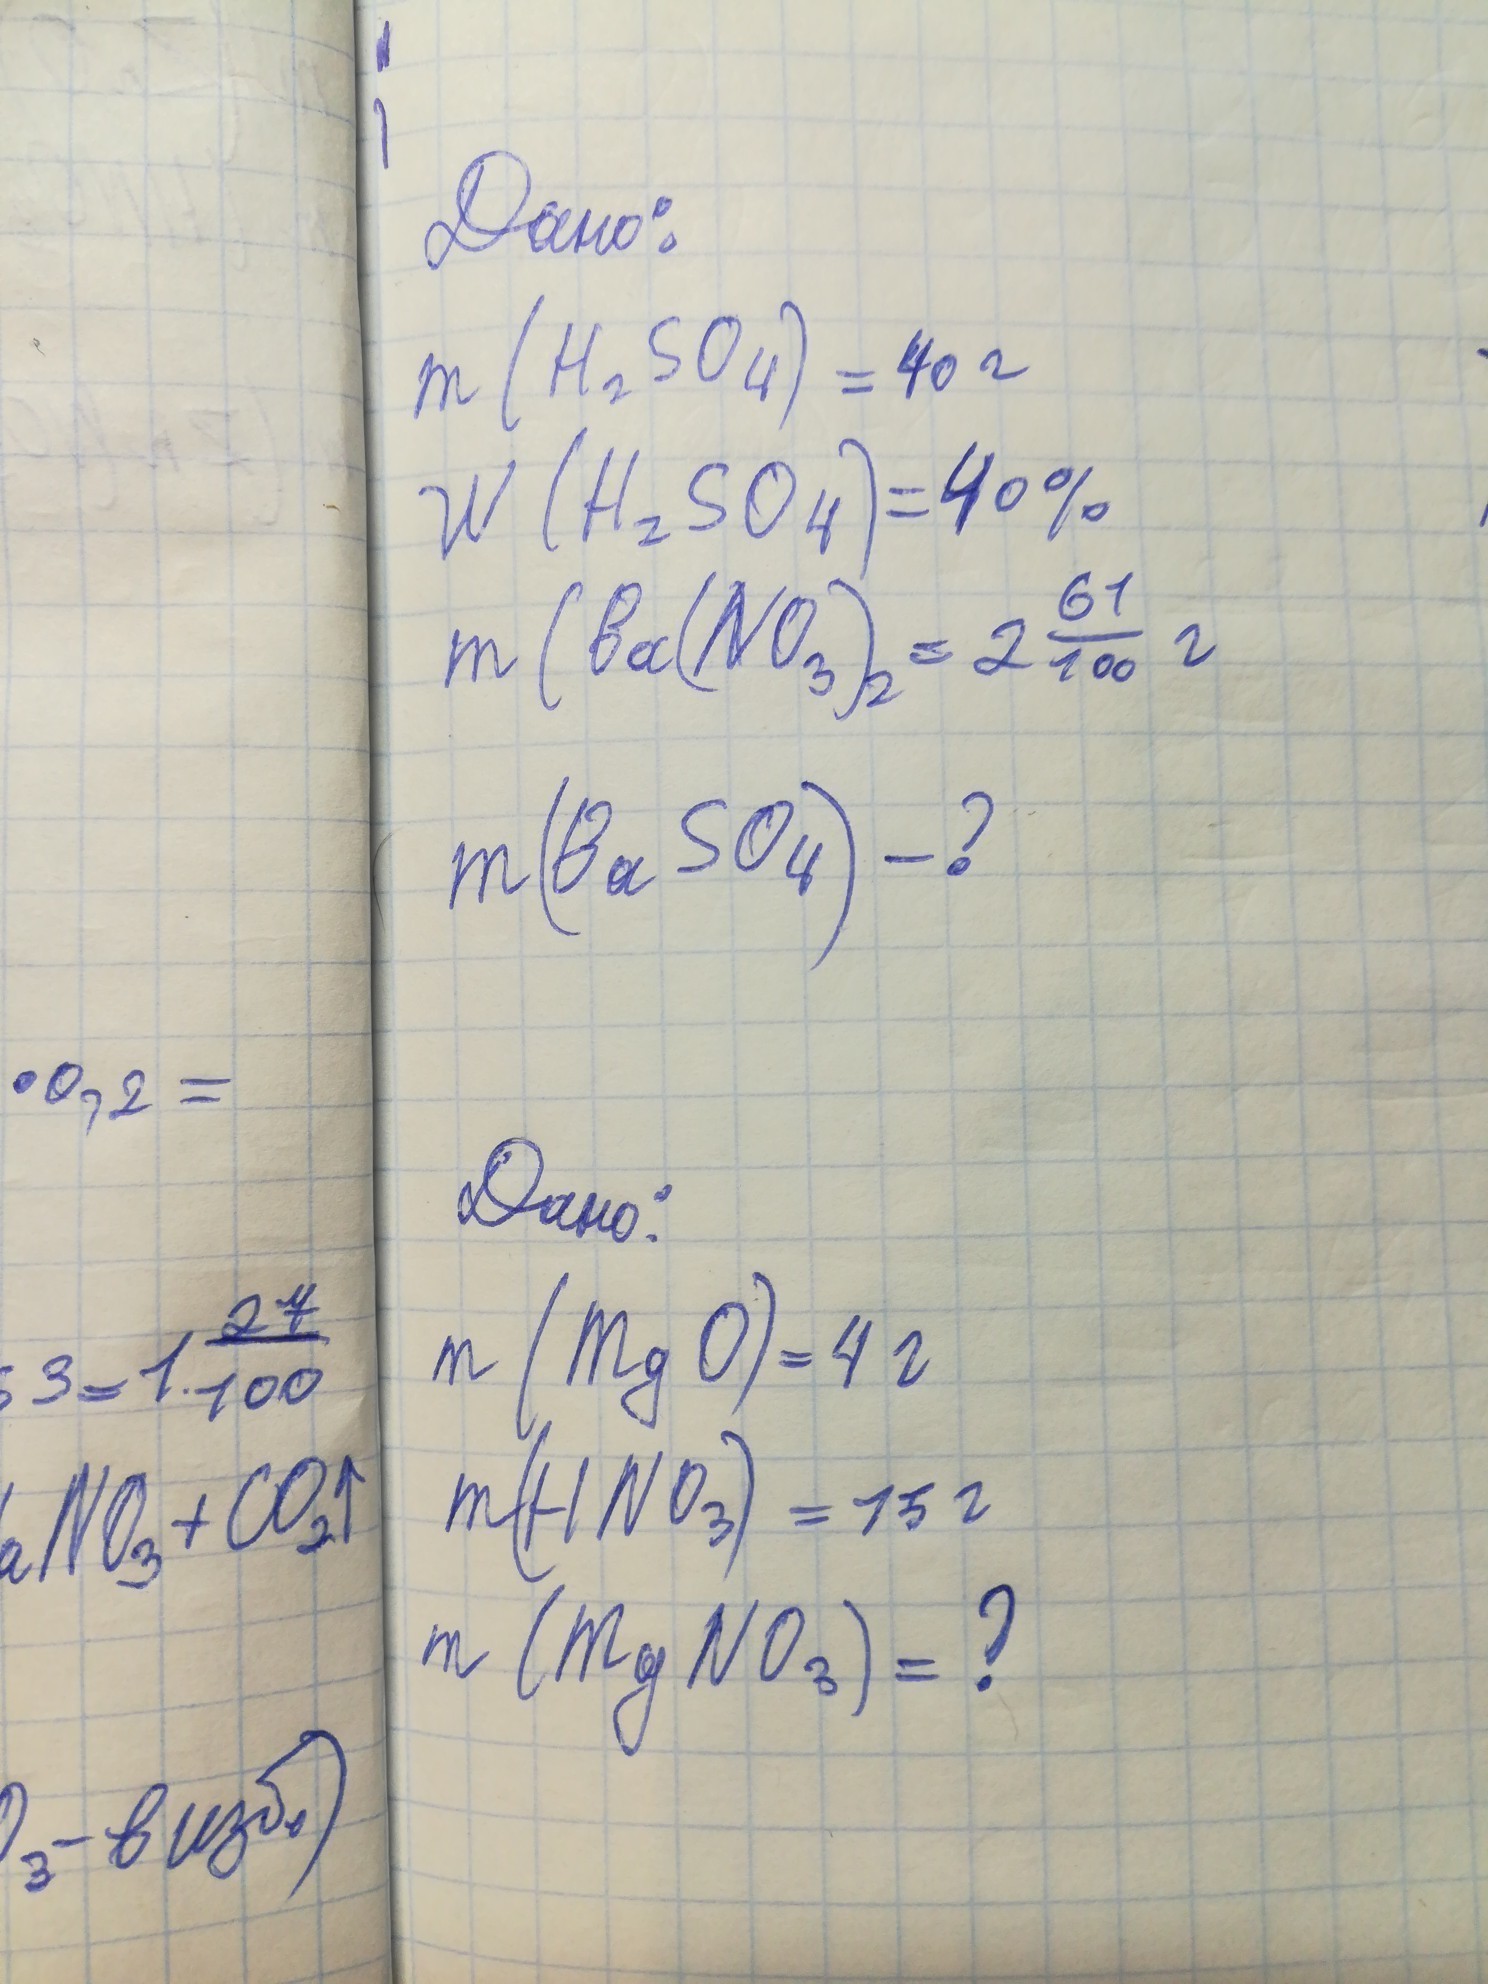 •0,2 =
53=1 27/100
aNO₃+CO₂↑
O₃-в изб.)
Дано:
m(H₂SO₄)=40 г
W(H₂SO₄)=40%
m(Ba(NO₃)₂=2 61/100 г
m(BaSO₄)-?
Дано:
m(MgO)=4 г
m(HNO₃)=15 г
m(MgNO₃)=?